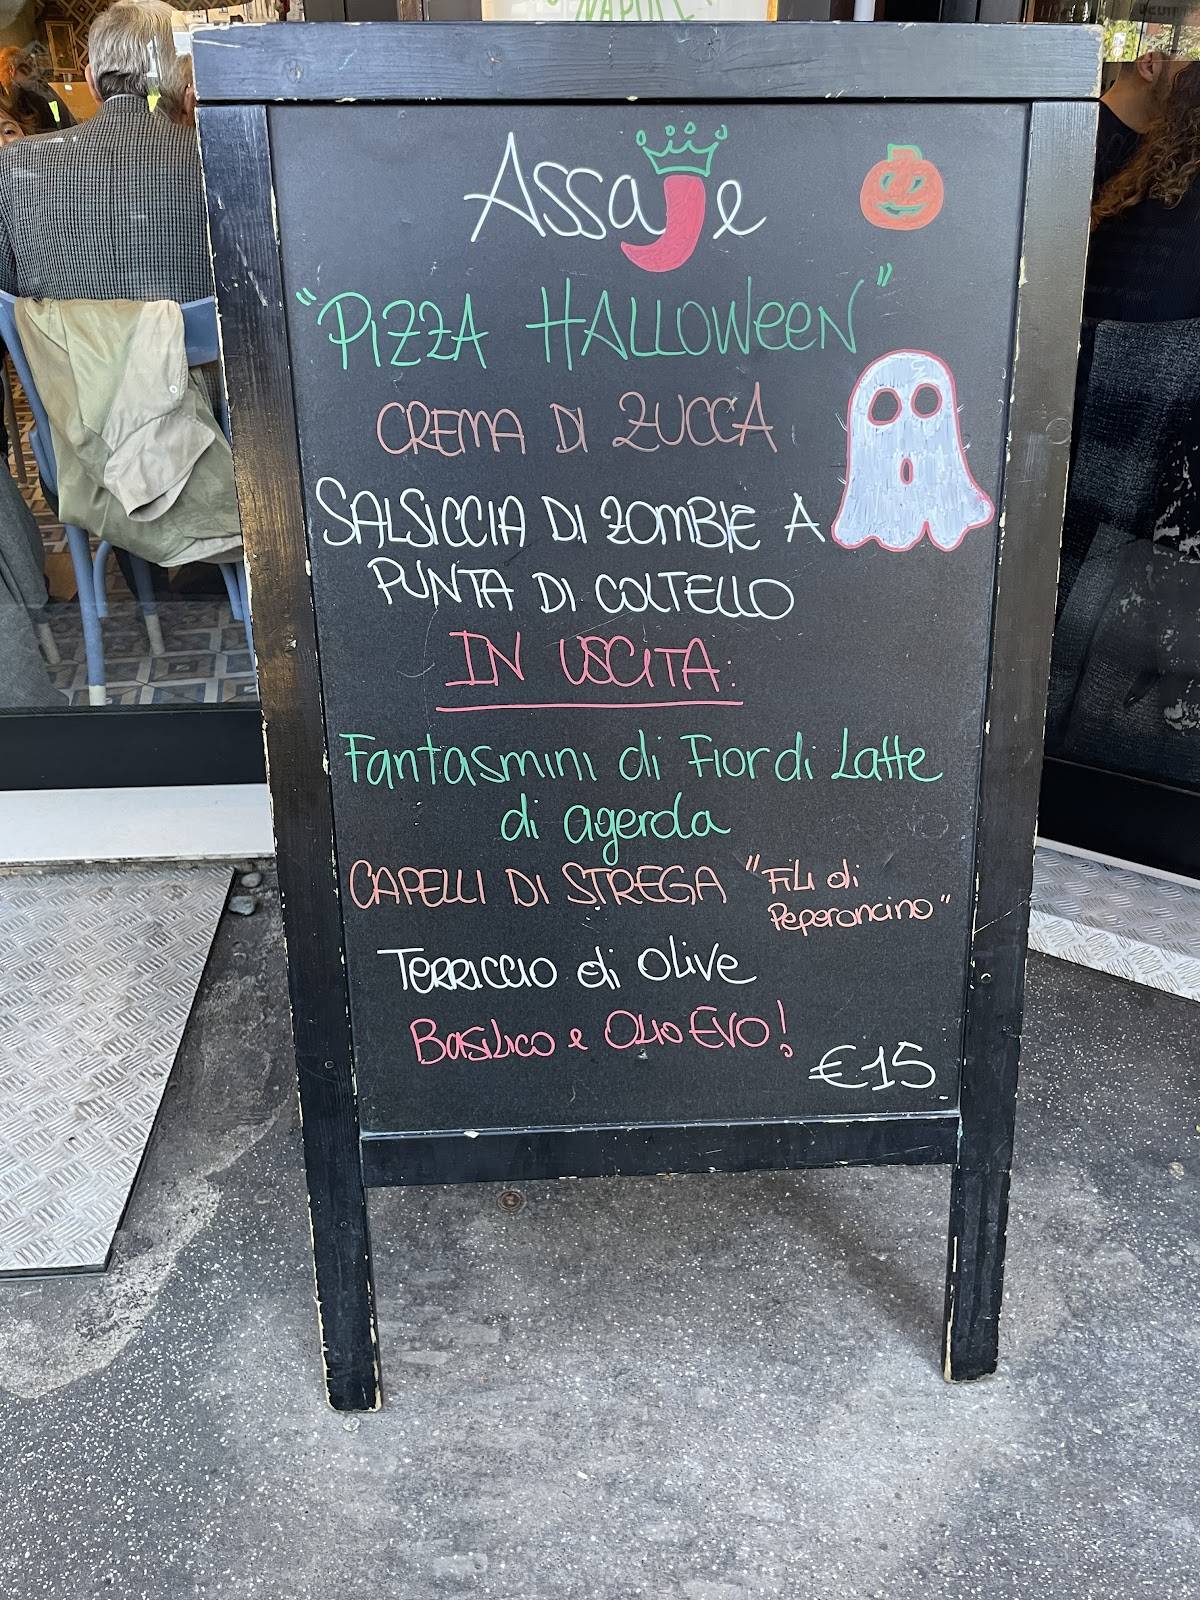 NAPOLI
Assaje
"PIZZA HALLOWEEN"
CREMA DI ZUCCA
SALSICCIA DI ZOMBIE A
PUNTA DI COLTELLO
IN USCITA:
Fantasmini di Fior di Latte
di agerola
CAPELLI DI STREGA "Fili di
Peperoncino"
TERRICCIO di Olive
Basilico e Olio EVO!
€15